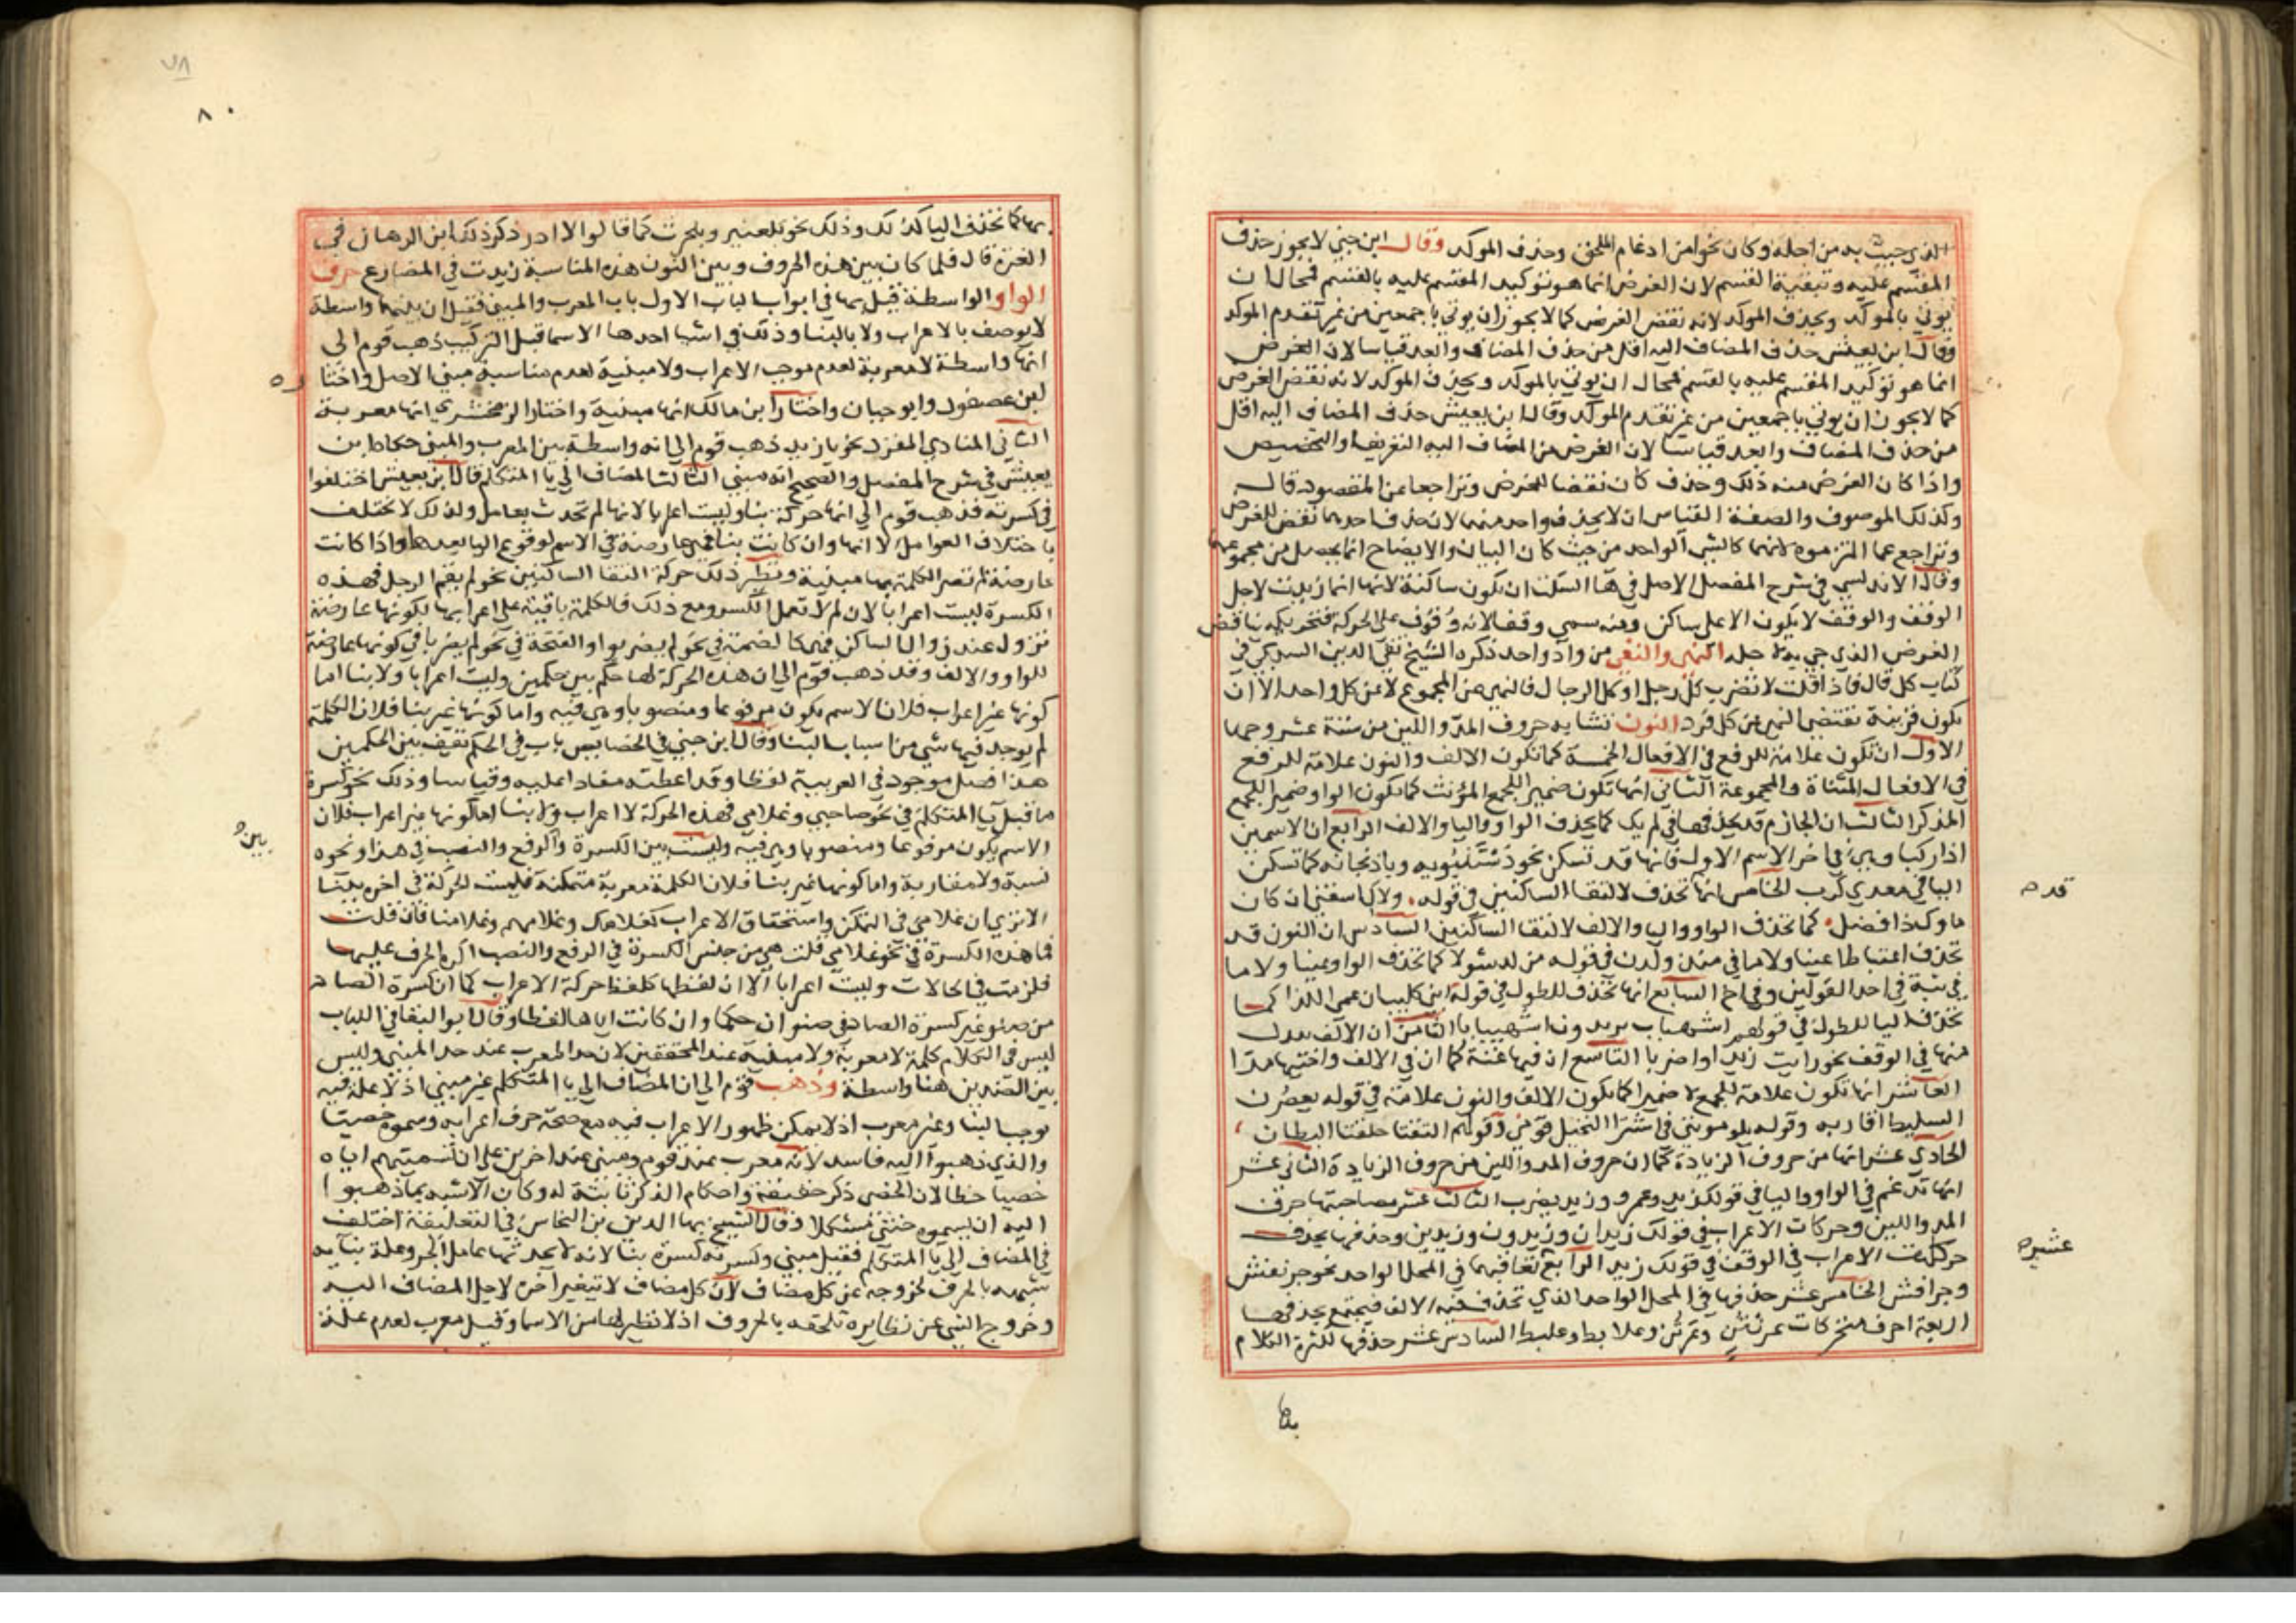 الذي جيئ به من اجله وكان نحوا من ادغام الملحق وحذف الموكد وقال ابن جني لا يجوز حذف
المقسم عليه وتبقية القسم لان الغرض انما هو توكيد المقسم عليه بالقسم فمحال ان
يوتي بالموكد ويحذف الموكد لانه نقض الغرض كما لا يجوز ان يوتي باجمعين من غير تقدم الموكد
وقال ابن يعيش حذف المضاف اليه اقل من حذف المضاف وابعد قياسا لان الغرض
انما هو توكيد المقسم عليه بالقسم فمحال ان يوتي بالموكد ويحذف الموكد لانه نقض الغرض
كما لا يجوز ان يوتي باجمعين من غير تقدم الموكد وقال ابن يعيش حذف المضاف اليه اقل
من حذف المضاف وابعد قياسا لان الغرض من المضاف اليه التعريف او التخصيص
واذا كان الغرض منه ذلك وحذف كان نقضا للغرض وتراجعا عن المقصود قال
وكذلك الموصوف والصفة القياس ان لا يحذف واحد منهما لان حذف احدهما نقض للغرض
وتراجع عما التزموه لانهما كالشي الواحد من حيث كان البيان والايضاح انما يحصل من مجموعهما
وقال الاندلسي في شرح المفصل الاصل في ها السكت ان يكون ساكنة لانها انما زيدت لاجل
الوقف والوقف لا يكون الا على ساكن ومنه سمي وقفا لانه وقوف على الحركة فتحريكه يناقض
الغرض الذي جي به لاجله النهي والنفي من واد واحد ذكره الشيخ تقي الدين السبكي في
كتاب كل قال فاذا قلت لا تضرب كل رجل او كل الرجال فالنهي عن المجموع لا عن كل واحد الا ان
يكون قرينة تقتضي النهي عن كل فرد النون تشابه حروف المد واللين من ستة عشر وجها
الاول ان تكون علامة للرفع في الافعال الخمسة كما تكون الالف والنون علامة للرفع
في الافعال المثناة والمجموعة الثاني انها تكون ضمير الجمع المؤنث كما يكون الواو ضمير الجمع
المذكر الثالث ان الجازم قد يحذفها في لم يك كما يحذف الواو واليا والالف الرابع ان الاسمين
اذا ركبا وهي في اخر الاسم الاول فانها قد تسكن نحو دستنبويه وباذنجانه كما تسكن
اليا في معدي كرب الخامس انها تحذف لالتقا الساكنين في قوله ولاك اسقني ان كان
ماوك ذا فضل كما تحذف الواو واليا والالف لالتقا الساكنين السادس ان النون قد
تحذف اعتباطا عينا ولاما في منذ ولدن في قوله من لد شولا كما تحذف الواو عينا ولاما
في ثبة في احد القولين وفي اخ السابع انها تحذف للطول في قوله ابني كليب ان عمي اللذا كما
تحذف اليا للطول في قولهم اشهباب يريدون اشهيبابا الثامن ان الالف بدل
منها في الوقف نحو رايت زيدا واضربا التاسع ان فيها غنة كما ان في الالف واختيها مدا
العاشر انها تكون علامة للجمع لا ضميرا كما يكون الالف والنون علامة في قوله يعصرن
السليط اقاربه وقوله يلومونني في اشترا النخيل قومي وقولهم التقتا حلقتا البطان
الحادي عشر انها من حروف الزيادة كما ان حروف المد واللين من حروف الزيادة الثاني عشر
انها تدغم في الواو واليا في قولك زيد وعمرو وزيد يضرب الثالث عشر مصاحبتها حرف
المد واللين وحركات الاعراب في قولك زيدان وزيدون وزيدين وحذفها بحذف
حركات الاعراب في الوقف في قولك زيد الرابع تعاقبهما في المحل الواحد نحو جرنفش
وجرافش الخامس عشر حذفها في المحل الواحد الذي تحذف فيه الالف فيجتمع بحذفها
اربعة احرف متحركات عرنتن وعرتن وعلابط وعلبط السادس عشر حذفها لكثرة الكلام
قده
عشره
بها
٧٨
٨٠
بها كما تحذف اليا كذلك وذلك نحو بلعنبر وبلحرث كما قالوا لا ادر ذكر ذلك ابن الدهان في
الغرة قال فلما كان بين هذه الحروف وبين النون هذه المناسبة زيدت في المضارع حرف
الواو الواسطة قيل بها في ابواب الباب الاول باب المعرب والمبني فقيل ان بينهما واسطة
لا يوصف بالاعراب ولا بالبنا وذلك في اشيا احدها الاسما قبل التركيب ذهب قوم الى
انها واسطة لا معربة لعدم موجب الاعراب ولا مبنية لعدم مناسبة مبني الاصل واختاره
ابن عصفور وابو حيان واختار ابن مالك انها مبنية واختار الزمخشري انها معربة
الثاني المنادي المفرد نحو يا زيد ذهب قوم الى انه واسطة بين المعرب والمبني حكاه ابن
يعيش في شرح المفصل والصحيح انه مبني الثالث المضاف الي يا المتكلم قال ابن يعيش اختلفوا
في كسرته فذهب قوم الي انها حركة بنا وليست اعرابا لانها لم تحدث بعامل ولذلك لا يختلف
باختلاف العوامل الا انها وان كانت بنا فهي عارضة في الاسم لوقوع اليا بعدها واذا كانت
عارضة لم تصر الكلمة بها مبنية ونظير ذلك حركة التقا الساكنين نحو لم يقم الرجل فهذه
الكسرة ليست اعرابا لان لم لا تعمل الكسر ومع ذلك فالكلمة باقية على اعرابها لكونها عارضة
تزول عند زوال الساكن فهي كالضمة في نحو لم يضربوا والفتحة في نحو لم يضربا في كونها عارضة
للواو والالف وقد ذهب قوم الى ان هذه الحركة لها حكم بين حكمين وليست اعرابا ولا بنا اما
كونها غير اعراب فلان الاسم يكون مرفوعا ومنصوبا وهي فيه واما كونها غير بنا فلان الكلمة
لم يوجد فيها شي من اسباب البنا وقال ابن جني في الخصايص باب في الحكم يقف بين الحكمين
هذا فصل موجود في العربية لفظا وقد اعطته مقادا عليه وقياسا وذلك نحو كسرة
ما قبل يا المتكلم في نحو صاحبي وغلامي فهذه الحركة لا اعراب ولا بنا اما كونها غير اعراب فلان
الاسم يكون مرفوعا ومنصوبا وهي فيه وليست بين الكسرة والرفع والنصب في هذا ونحوه
نسبة ولا مقاربة واما كونها غير بنا فلان الكلمة معربة متمكنة فليست الحركة في اخره ببنا
الا تري ان غلامي في التمكن واستحقاق الاعراب كغلامك وغلامهم وغلامنا فان قلت
فما هذه الكسرة في نحو غلامي قلت هي من جنس الكسرة في الرفع والنصب اكره الحرف عليها
فلزمت في الحالات وليست اعرابا الا ان لفظها كلفظ حركة الاعراب كما ان كسرة الصاد
من صنو غير كسرة الصاد في صنوان حكما وان كانت اياها لفظا وقال ابو البقا في اللباب
ليس في الكلام كلمة لا معربة ولا مبنية عند المحققين لان حد المعرب عند حد المبني وليس
بين الضدين هنا واسطة وذهب قوم الى ان المضاف الي يا المتكلم غير مبني اذ لا علة فيه
توجب البنا وغير معرب اذ لا يمكن ظهور الاعراب فيه مع صحة حرف اعرابه وسموه خصيا
والذي ذهبوا اليه فاسد لانه معرب عند قوم ومبني عند اخرين علي ان تسميتهم اياه
خصيا خطا لان الخصي ذكر حقيقة واحكام الذكر ثابتة له وكان الاشبه بما ذهبوا
اليه ان يسموه خنثي مشكلا وقال الشيخ بها الدين بن النحاس في التعليقة اختلف
في المضاف الي يا المتكلم فقيل مبني وكسرته كسرة بنا لانه لا يحدثها عامل الجر وعلة بنايه
شبهه بالحرف لخروجه عن كل مضاف لان كل مضاف لا يتغير اخره لاجل المضاف اليه
وخروج الشي عن نظايره تلحقه بالحروف اذ لا نظير لها من الاسما وقيل معرب لعدم علة
بين